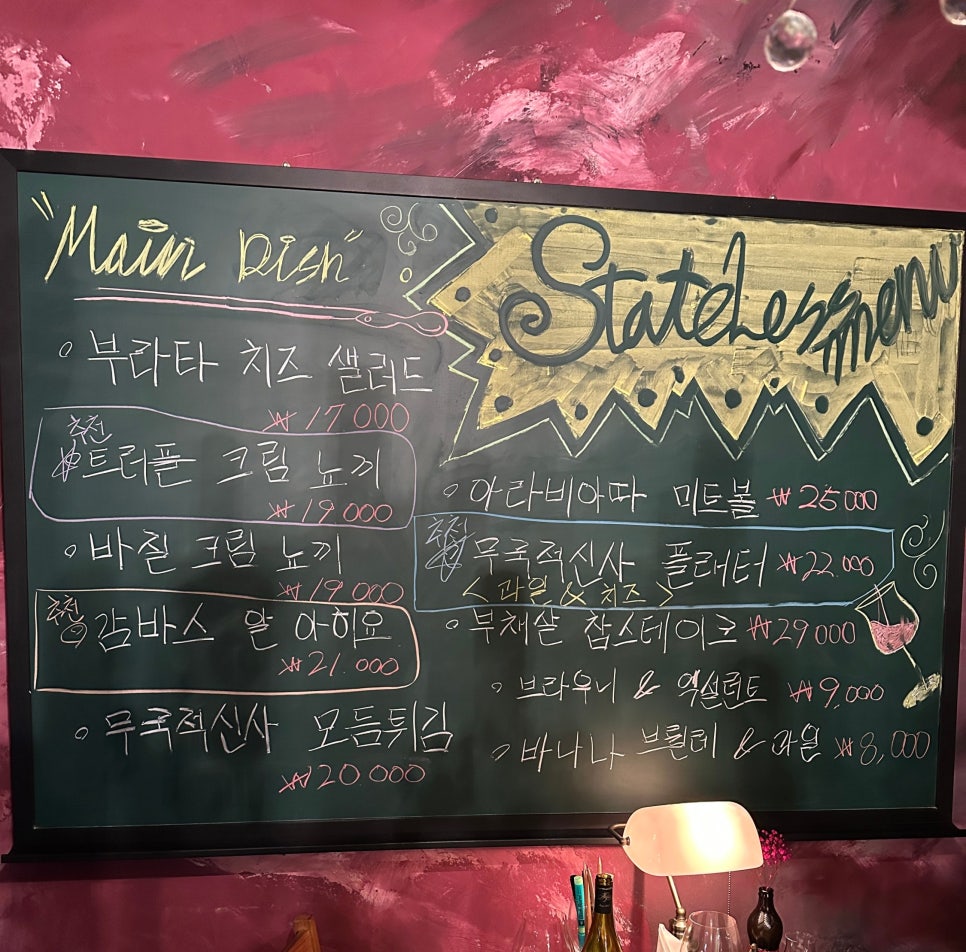 "Main Dish"
부라타 치즈 샐러드
₩17000
추천
트러플 크림 뇨끼
₩19.000
바질 크림 뇨끼
₩19.000
추천
감바스 알 아히요
₩21.000
무국적신사 모듬튀김
₩20.000
StateLess menu
아라비아따 미트볼 ₩25000
추천
무국적신사 플래터 ₩22.000
<과일 & 치즈>
부채살 찹스테이크 ₩29000
브라우니 & 엑설런트 ₩9,000
바나나 브륄레 & 과일 ₩8,000